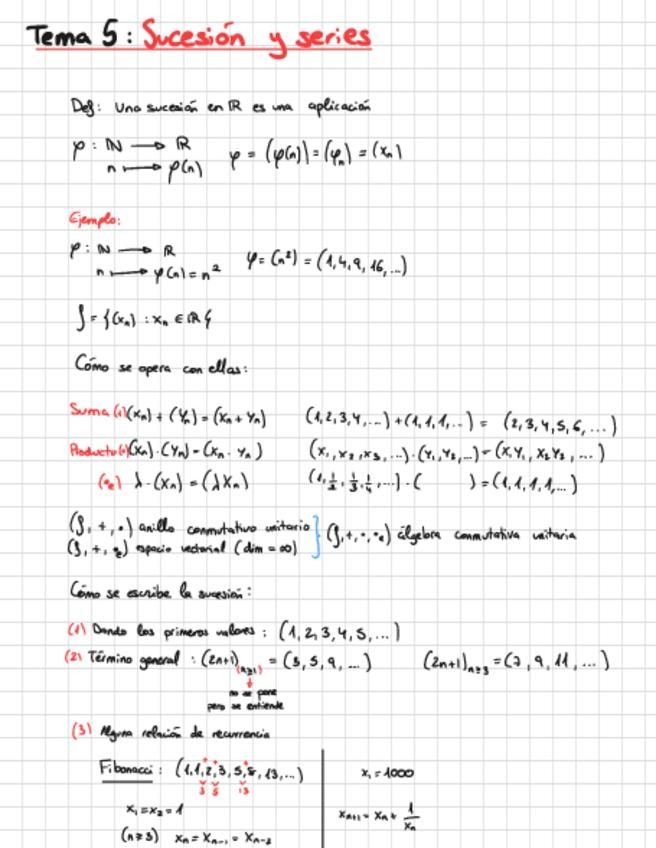 Tema 5: Sucesión y series
Def: Una sucesión en ℝ es una aplicación
φ : ℕ ⟶ ℝ
n ⟼ φ(n)
φ = (φ(n)) = (φₙ) = (xₙ)
Ejemplo:
φ : ℕ ⟶ ℝ
n ⟼ φ(n) = n²
φ = (n²) = (1, 4, 9, 16, ...)
S = {(xₙ) : xₙ ∈ ℝ}
Cómo se opera con ellas:
Suma (+) (xₙ) + (yₙ) = (xₙ + yₙ) (1, 2, 3, 4, ...) + (1, 1, 1, ...) = (2, 3, 4, 5, 6, ...)
Producto (·) (xₙ) · (yₙ) = (xₙ · yₙ) (x₁, x₂, x₃, ...) · (y₁, y₂, ...) = (x₁y₁, x₂y₂, ...)
(·ₑ) λ · (xₙ) = (λxₙ) (1, 1/2, 1/3, 1/4, ...) · ( ) = (1, 1, 1, 1, ...)
(S, +, ·) anillo conmutativo unitario
(S, +, ·ₑ) espacio vectorial (dim = ∞)
(S, +, ·, ·ₑ) álgebra conmutativa unitaria
Cómo se escribe la sucesión:
(1) Dando los primeros valores : (1, 2, 3, 4, 5, ...)
(2) Término general : (2n+1)(n≥1) = (3, 5, 9, ...) (2n+1)n≥3 = (7, 9, 11, ...)
no se pone
pero se entiende
(3) Alguna relación de recurrencia
Fibonacci : (1, 1, 2, 3, 5, 8, 13, ...)
3 5 13
x₁ = x₂ = 1
(n≥3) xₙ = xₙ₋₁ = xₙ₋₂
x₁ = 1000
xₙ₊₁ = xₙ + 1/xₙ